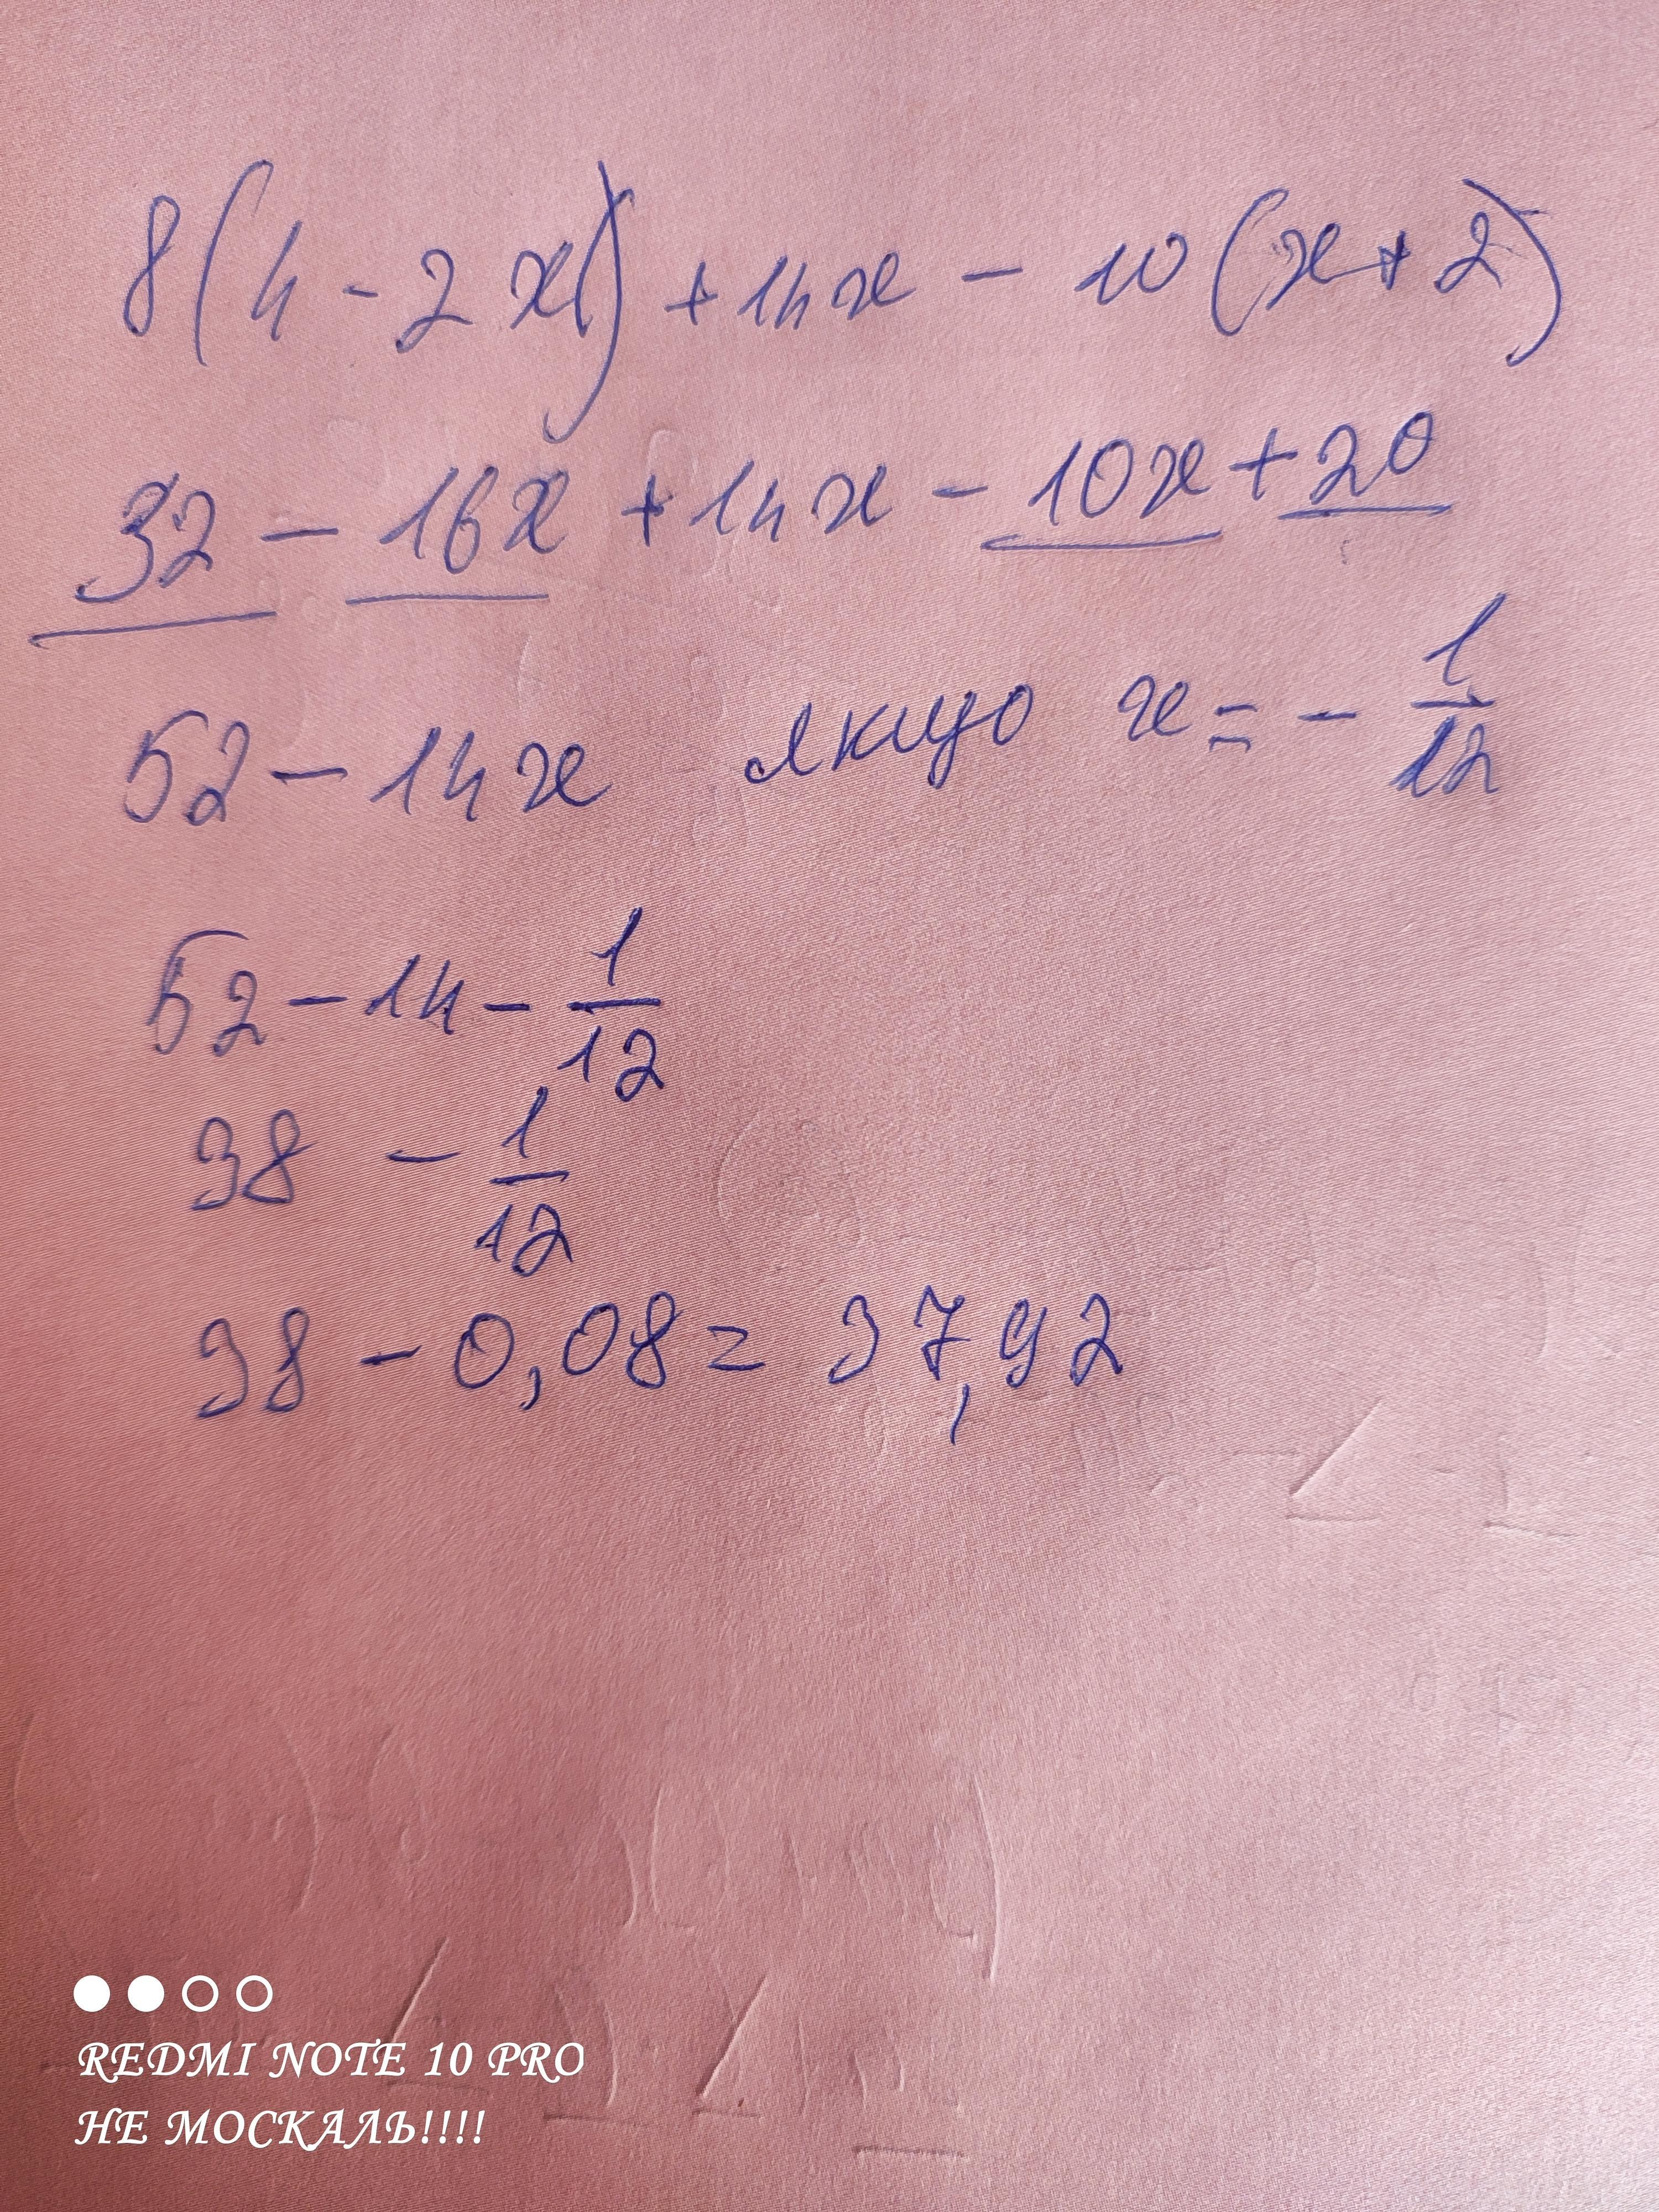 8(4-2x)+14x-10(x+2)
32-16x+14x-10x+20
52-14x якщо x=-1/12
52-14-1/12
38-1/12
38-0,08=37,92
REDMI NOTE 10 PRO
НЕ МОСКАЛЬ!!!!